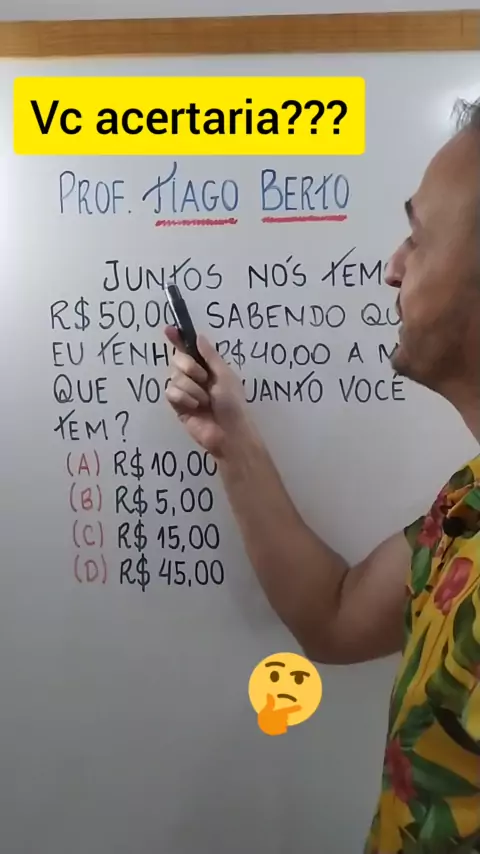 Vc acertaria???
PROF. TIAGO BERTO
JUNTOS NÓS TEM
R$50,00 SABENDO QU
EU TENH R$40,00 A M
QUE VO UANTO VOCÊ
TEM?
(A) R$ 10,00
(B) R$ 5,00
(C) R$ 15,00
(D) R$ 45,00